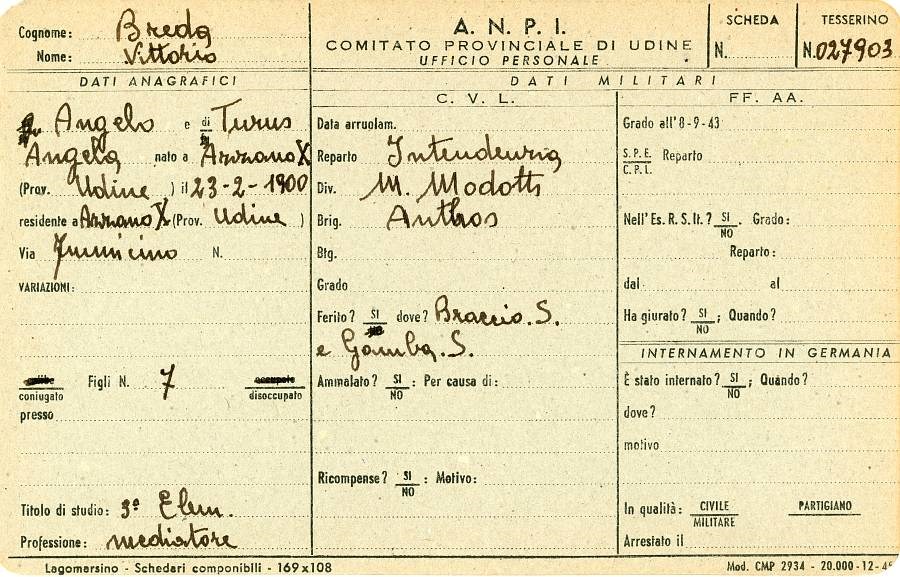 Cognome: Breda
Nome: Vittorio
A. N. P. I.
COMITATO PROVINCIALE DI UDINE
UFFICIO PERSONALE
SCHEDA
N.
TESSERINO
N. 027903
DATI ANAGRAFICI
Angelo e di Turus
Angela nato a Azzano X
(Prov. Udine ) il 23-2-1900
residente a Azzano X (Prov. Udine )
Via N.
VARIAZIONI:
coniugato
Figli N. 7
disoccupato
presso
Titolo di studio: 3ª Elem.
Professione: mediatore
DATI MILITARI
C. V. L.
Data arruolam.
Reparto Intendenza
Div. M. Modotti
Brig. Anthos
Btg.
Grado
Ferito? SI dove? Braccio. S.
e Gamba. S.
Ammalato? SI/NO : Per causa di:
Ricompense? SI/NO : Motivo:
FF. AA.
Grado all'8-9-43
S.P.E./C.P.L. Reparto
Nell'Es. R. S. It.? SI/NO . Grado:
Reparto:
dal al
Ha giurato? SI/NO ; Quando?
INTERNAMENTO IN GERMANIA
È stato internato? SI/NO ; Quando?
dove?
motivo
In qualità: CIVILE/MILITARE PARTIGIANO
Arrestato il
Lagomarsino - Schedari componibili - 169x108
Mod. CMP 2934 - 20.000-12-